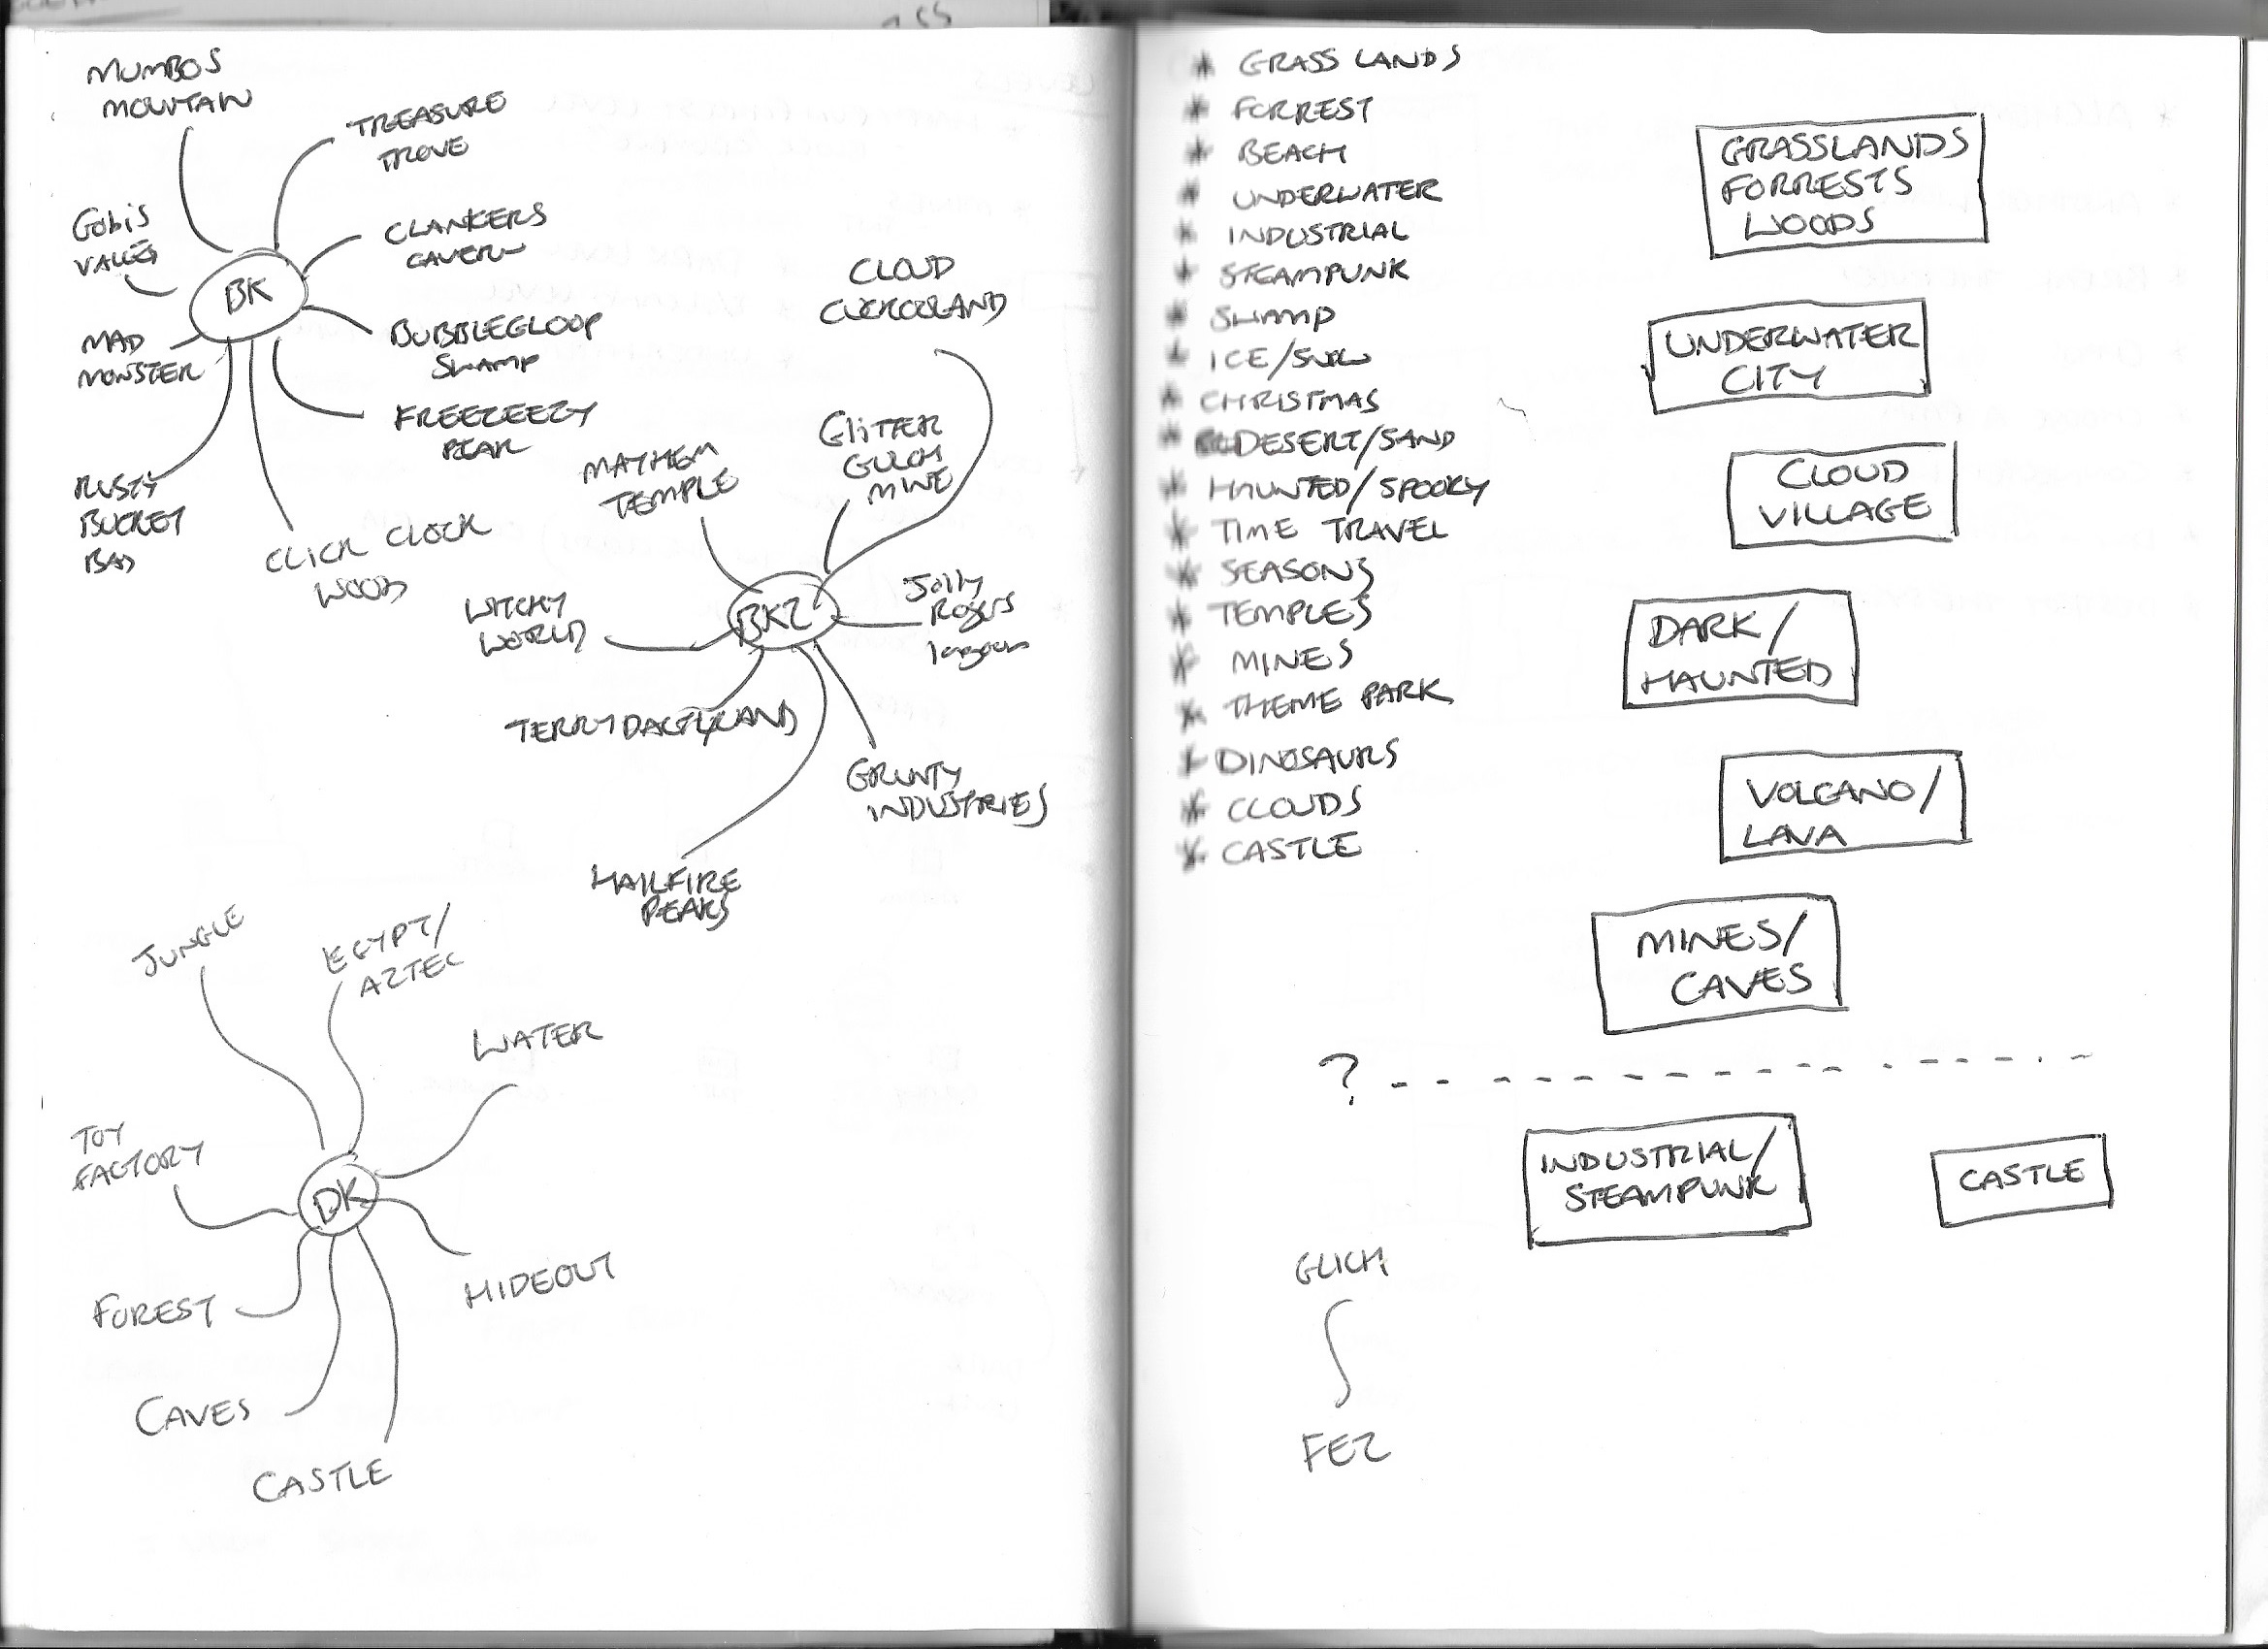 MUMBOS
MOUNTAIN
TREASURE
TROVE
GobiS
VALLEY
CLANKERS
CAVERN
BK
MAD
MONSTER
BUBBLEGLOOP
SWAMP
FREEZEEZY
PEAK
RUSTY
BUCKET
BAD
CLICK CLOCK
WOOD
CLOUD
CUCKOOLAND
MAYHEM
TEMPLE
GLITTER
GULCH
MINE
WITCHY
WORLD
BK2
Jolly
Rogers
lagoon
TERRYDACTYLAND
GRUNTY
INDUSTRIES
HAILFIRE
PEAKS
JUNGLE
EGYPT/
AZTEC
WATER
TOY
FACTORY
DK
FOREST
HIDEOUT
CAVES
CASTLE
* GRASS LANDS
* FORREST
* BEACH
* UNDERWATER
* INDUSTRIAL
* STEAMPUNK
* SWAMP
* ICE/SNOW
* CHRISTMAS
* DESERT/SAND
* HAUNTED/SPOOKY
* TIME TRAVEL
* SEASONS
* TEMPLES
* MINES
* THEME PARK
* DINOSAURS
* CLOUDS
* CASTLE
GRASSLANDS
FORRESTS
WOODS
UNDERWATER
CITY
CLOUD
VILLAGE
DARK/
HAUNTED
VOLCANO/
LAVA
MINES/
CAVES
?
INDUSTRIAL/
STEAMPUNK
CASTLE
GLICH
FEZ